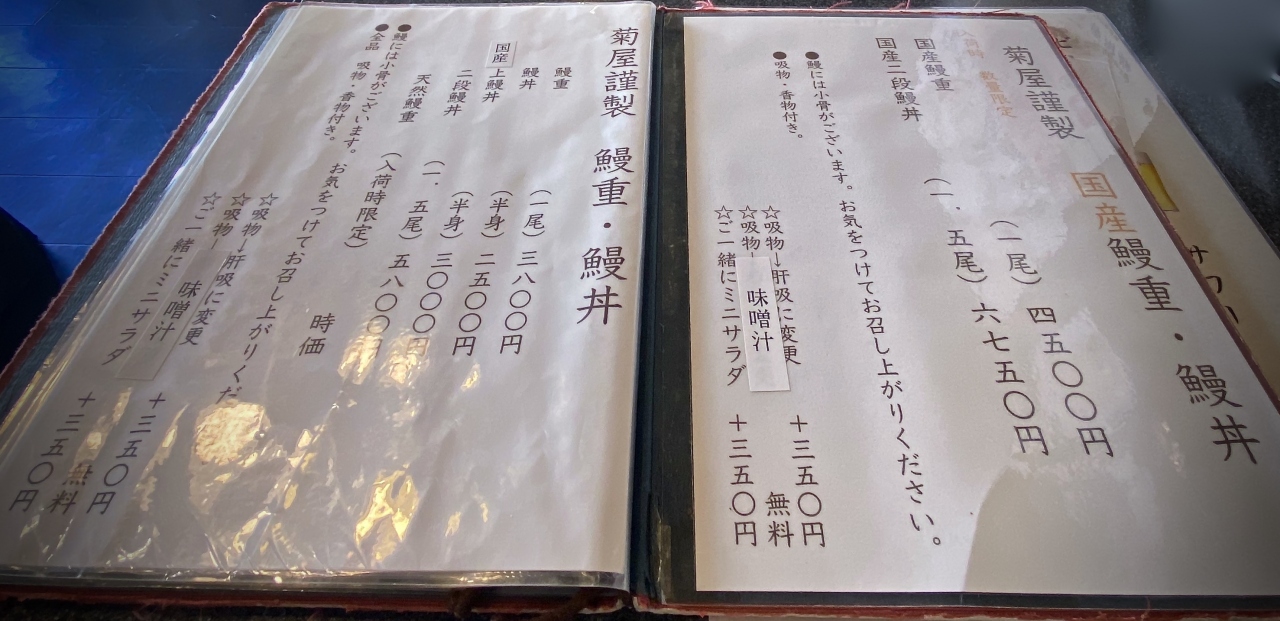 菊屋謹製 国産鰻重・鰻丼
入荷時 数量限定
国産鰻重 (一尾) 四五〇〇円
国産二段鰻丼 (一.五尾) 六七五〇円
●鰻には小骨がございます。お気をつけてお召し上がりください。
●吸物・香物付き。
☆吸物→肝吸に変更 +三五〇円
☆吸物→味噌汁 無料
☆ご一緒にミニサラダ +三五〇円
菊屋謹製 鰻重・鰻丼
鰻重 (一尾) 三八〇〇円
鰻丼 (半身) 二五〇〇円
国産 上鰻丼 (半身) 三〇〇〇円
二段鰻丼 (一.五尾) 五八〇〇円
天然鰻重 (入荷時限定) 時価
●鰻には小骨がございます。お気をつけてお召し上がりくだ
●全品 吸物・香物付き。
☆吸物→肝吸に変更 +三五〇円
☆吸物→味噌汁 無料
☆ご一緒にミニサラダ +三五〇円